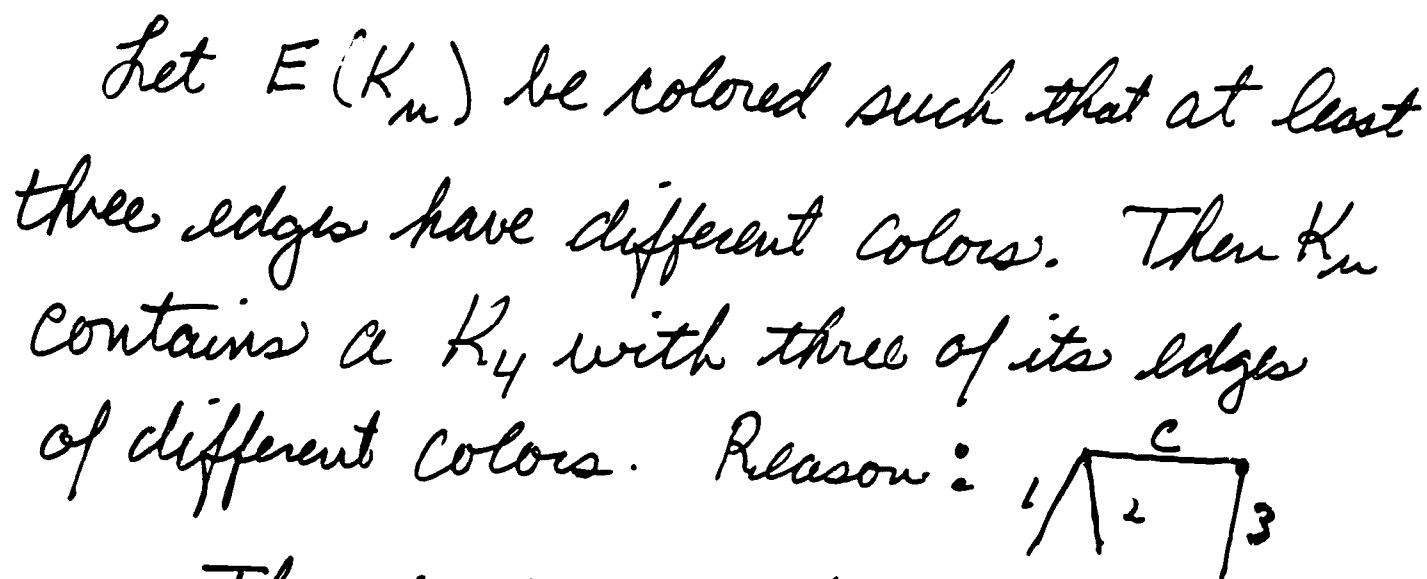 Let E(Kn) be colored such that at least
three edges have different colors. Then Kn
contains a K4 with three of its edges
of different colors. Reason:
C
1 2 3